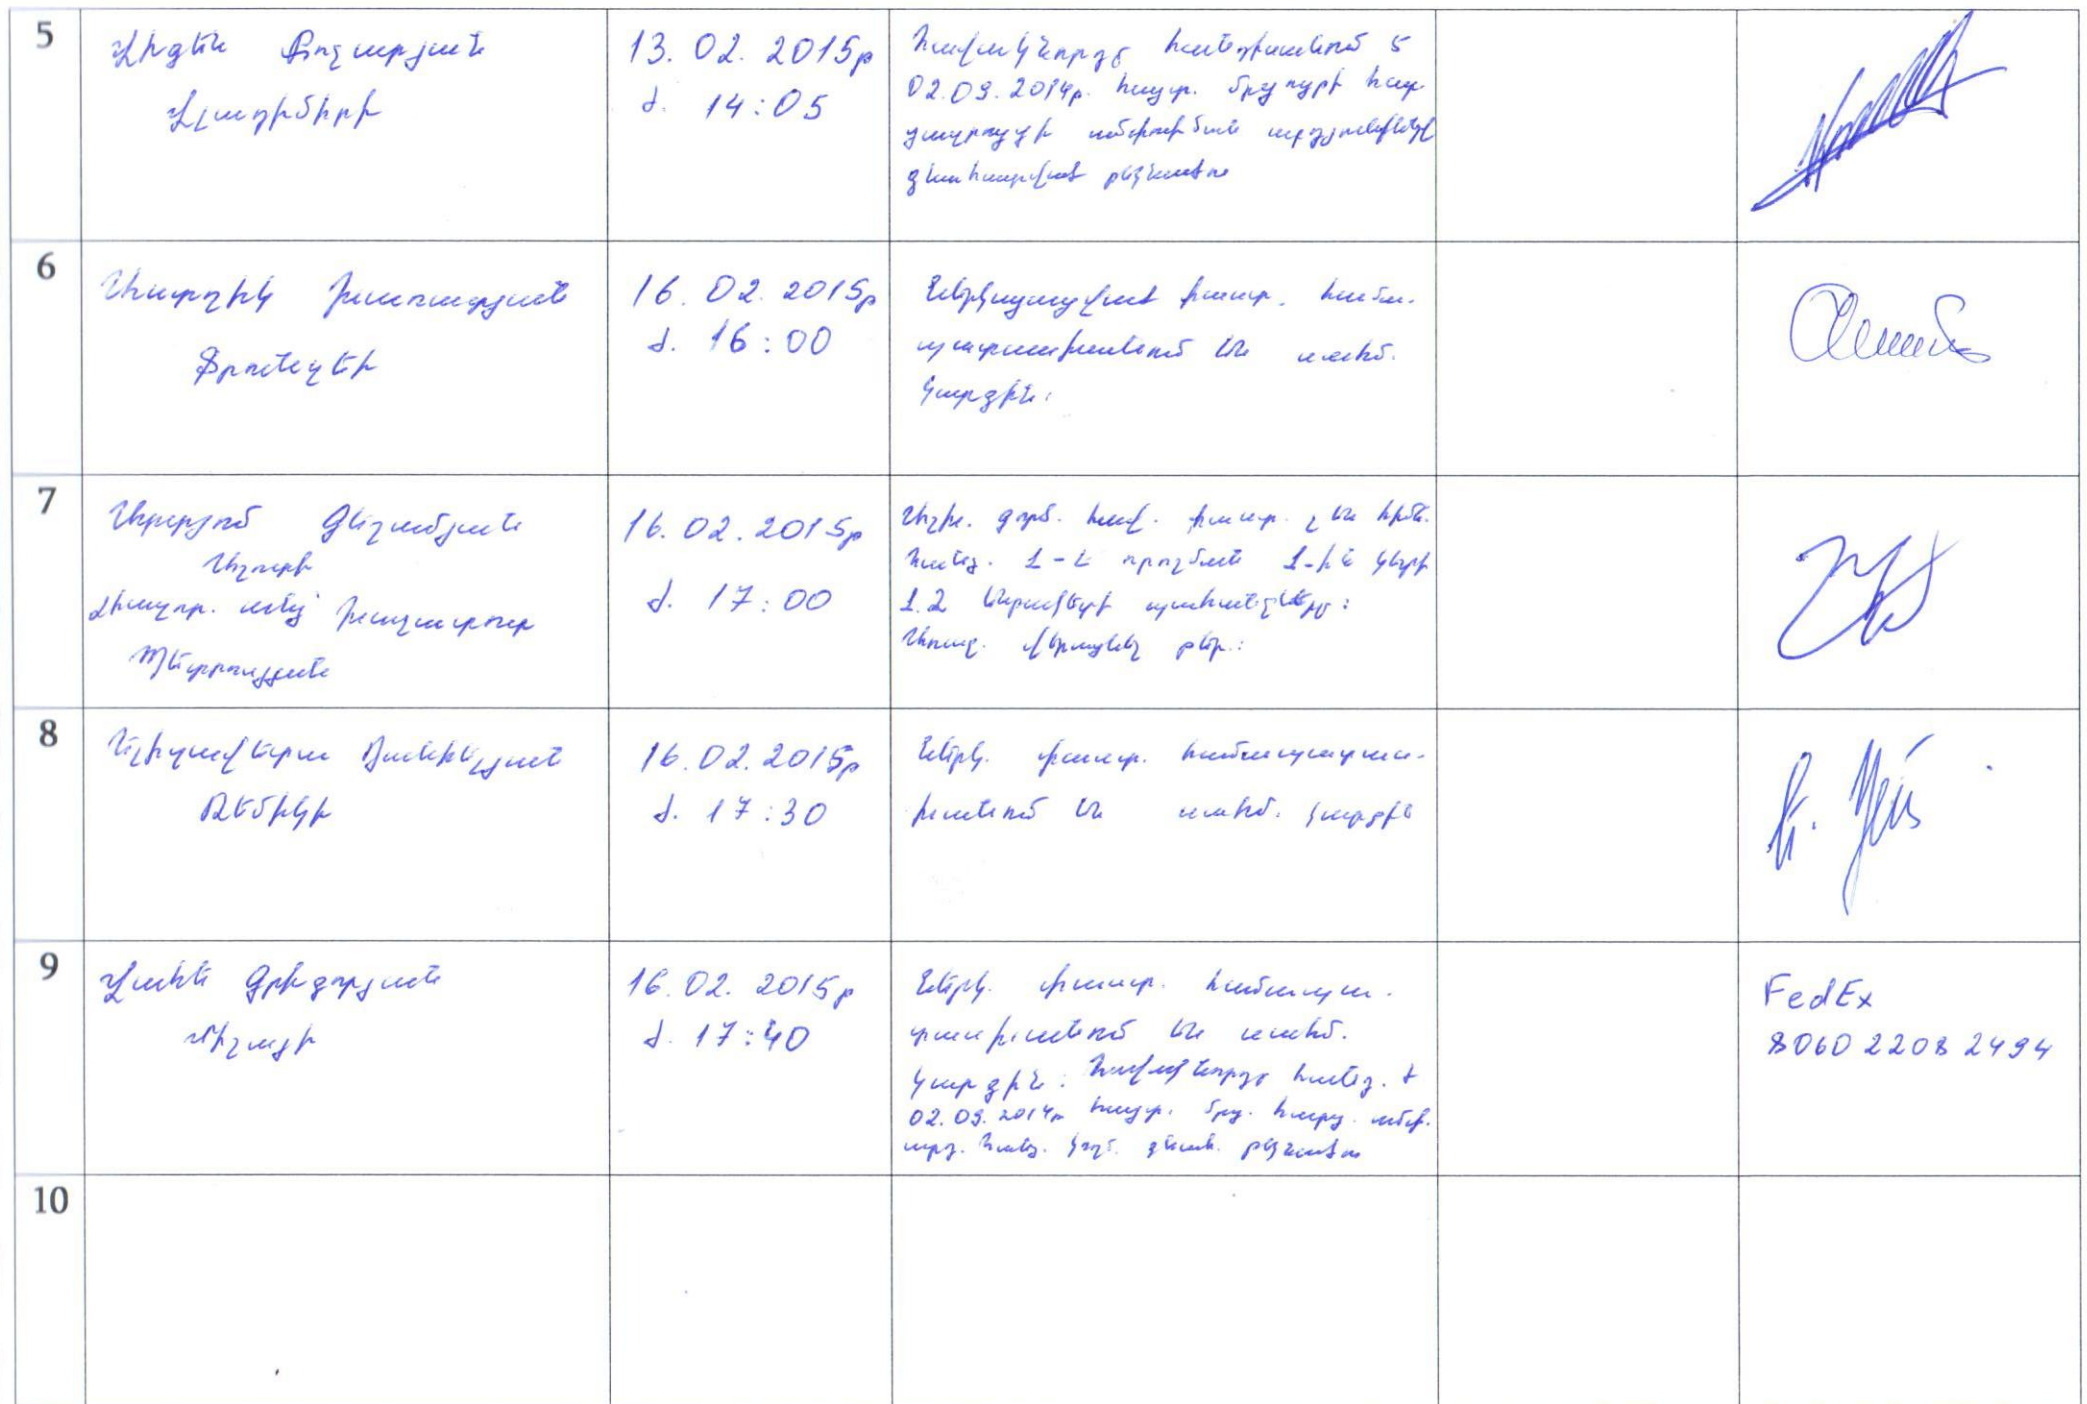 5
Վիգեն Քոչարյան
Վլադիմիրի
13.02.2015թ
ժ. 14:05
Հավակնորդը հանդիսանում է
02.09.2014թ. հայտ. մրցույթի հար-
ցազրույցի ամփոփման արդյունքներով
գնահատված բեկնածու
6
Սիարդիկ Խառատյան
Ֆրունզեի
16.02.2015թ
ժ. 16:00
Ներկայացված փաստ. համա-
պատասխանում են սահմ.
կարգին:
7
Արարյում Գեղամյան
Աշոտի
Լիազոր. անձ Խաչատուր
Պետրոսյան
16.02.2015թ
ժ. 17:00
Աշխ. գործ. հավ. փաստ. չեն հիմն.
հանձ. 1-Ն որոշման 1-ին կետի
1.2 ենթակետի պահանջները:
Առաջ. վերացնել թեր.:
8
Ելիզավետա Դանիելյան
Ռեմիկի
16.02.2015թ
ժ. 17:30
Ներկ. փաստ. համապատաս-
խանում են սահմ. կարգին
9
Վահե Գրիգորյան
Միշայի
16.02.2015թ
ժ. 17:40
Ներկ. փաստ. համապա-
տասխանում են սահմ.
կարգին: Հավակնորդը հանդ. է
02.09.2014թ հայտ. մրց. հարց. ամփ.
արդ. հանձ. կողմ. գնահ. բեկնածու
FedEx
8060 2208 2494
10